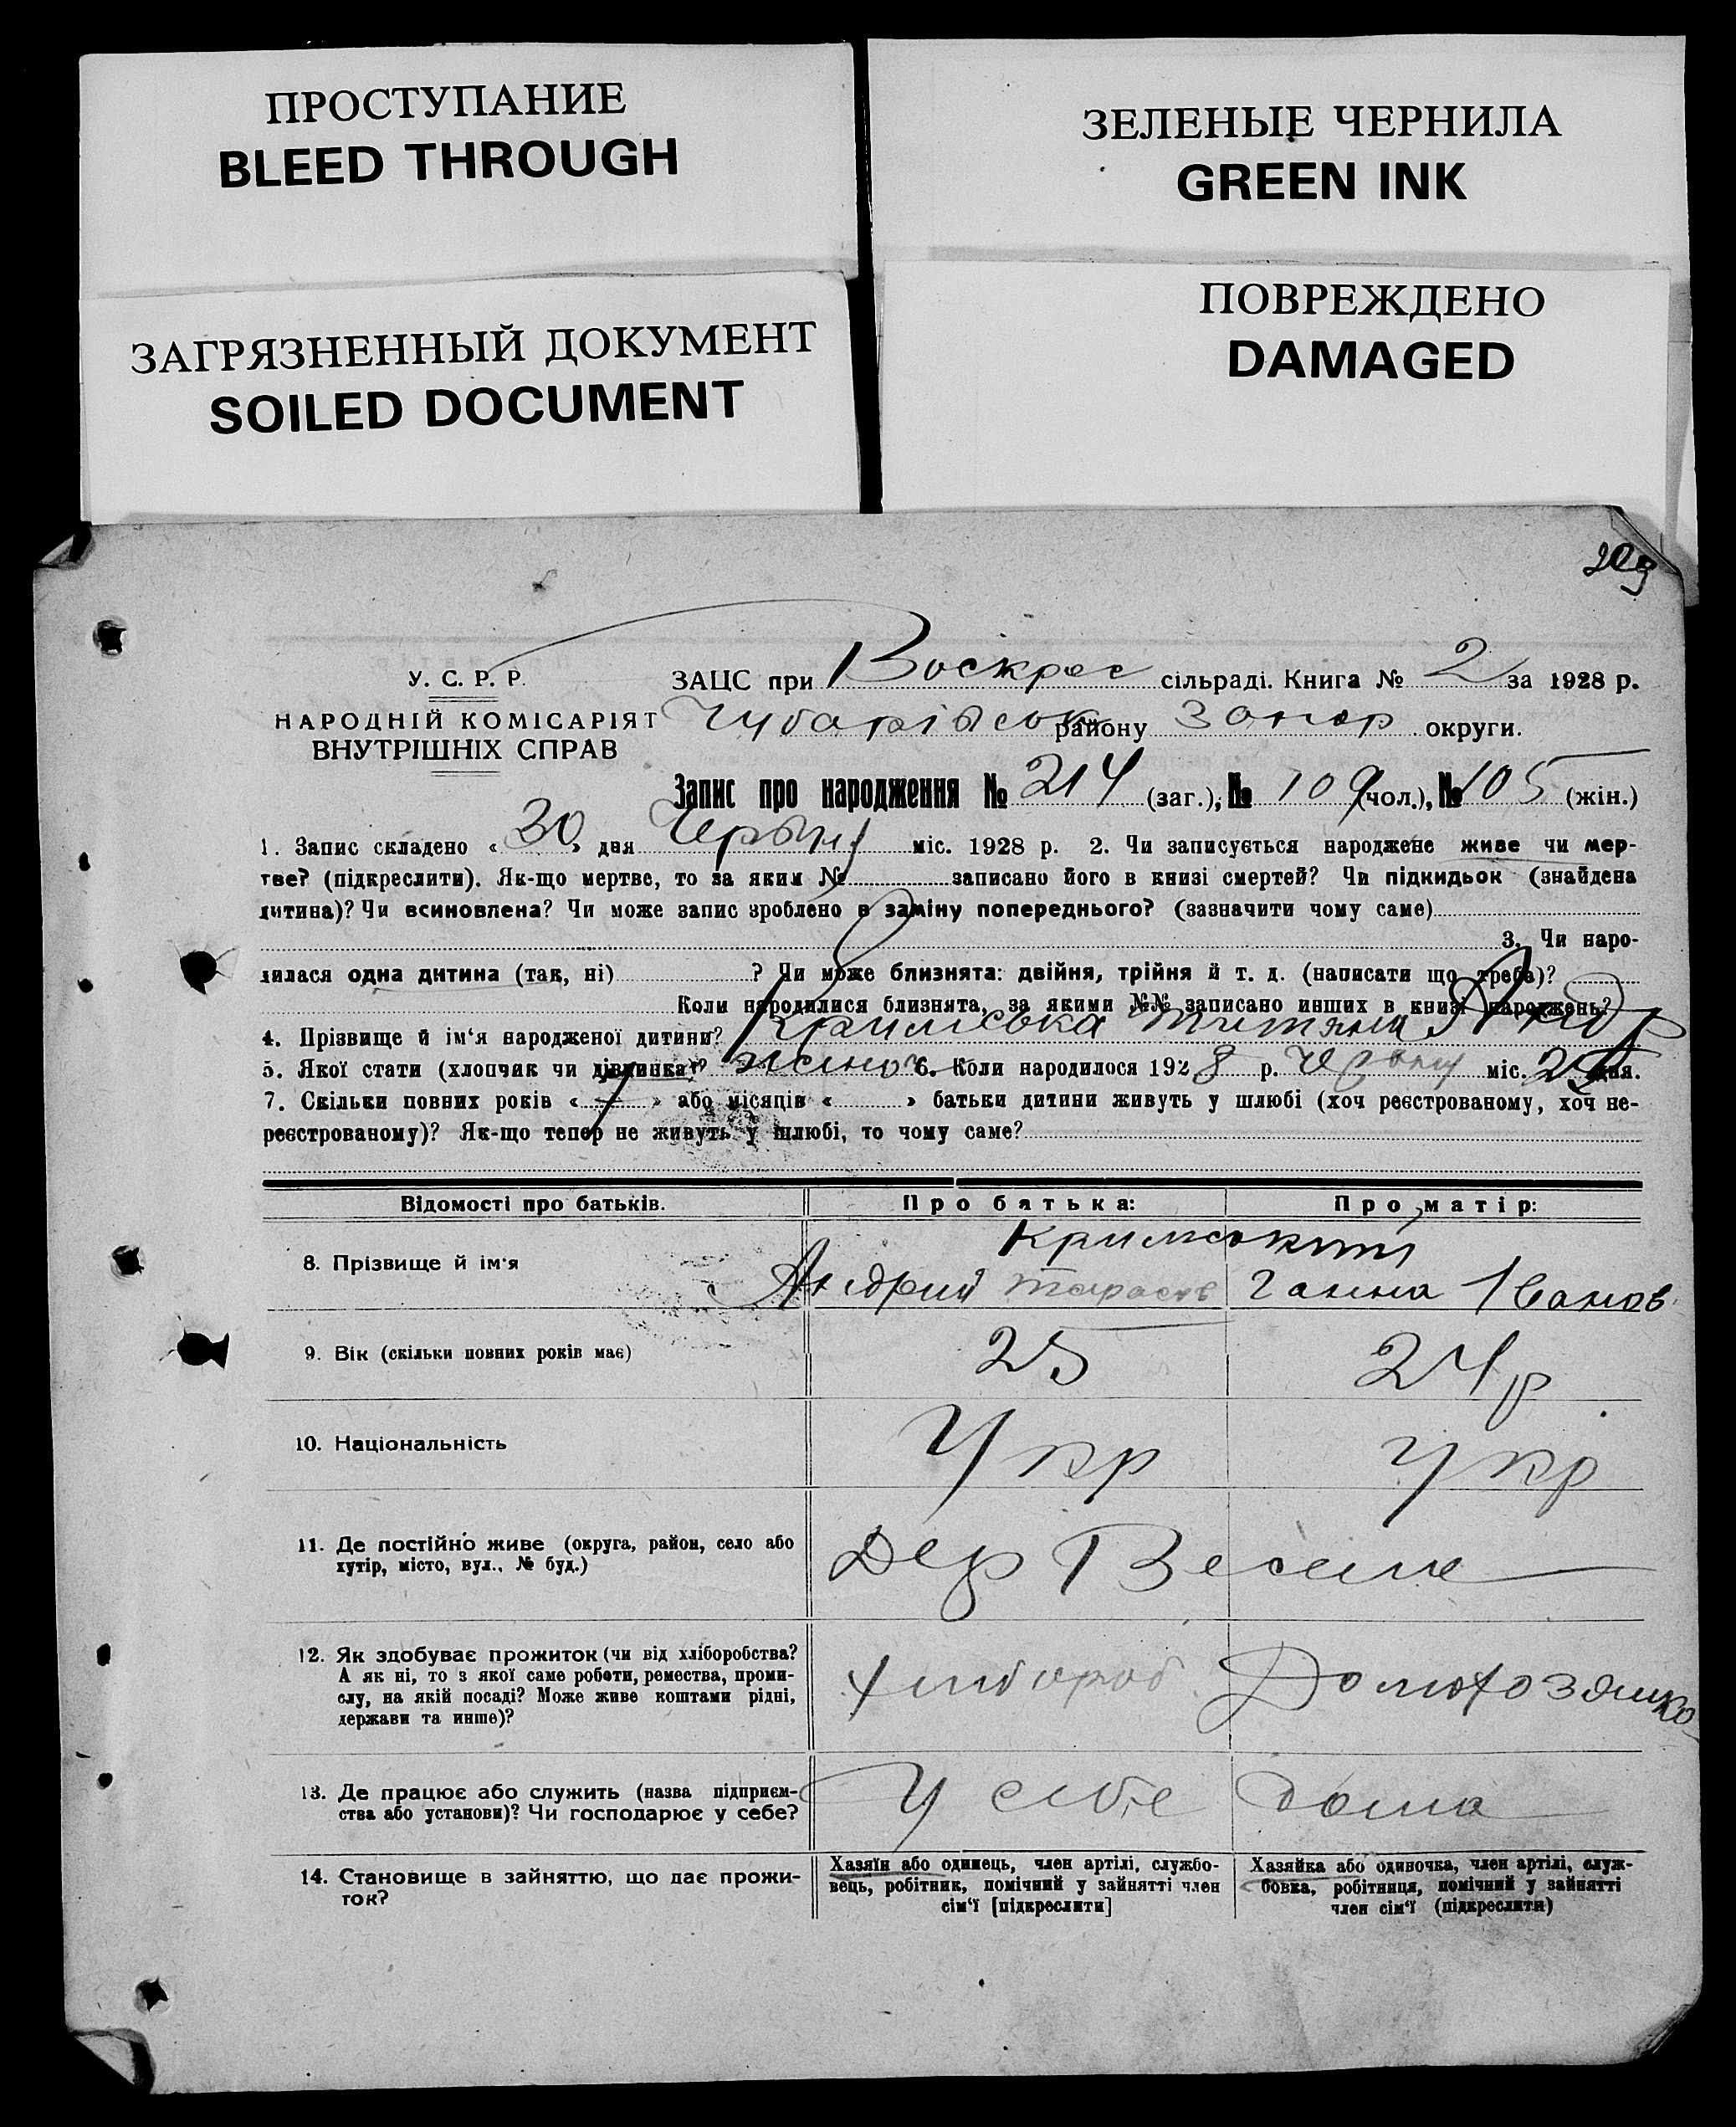 ПРОСТУПАНИЕ
BLEED THROUGH
ЗЕЛЕНЫЕ ЧЕРНИЛА
GREEN INK
ЗАГРЯЗНЕННЫЙ ДОКУМЕНТ
SOILED DOCUMENT
ПОВРЕЖДЕНО
DAMAGED
209
У. С. Р. Р.
НАРОДНІЙ КОМІСАРІЯТ
ВНУТРІШНІХ СПРАВ
ЗАЦС при Воскрес сільраді. Книга № 2 за 1928 р.
Чубарівськ району Запор округи.
Запис про народження № 214 (заг.), № 109 (чол.), № 105 (жін.)
1. Запис складено « 30 » дня Червня міс. 1928 р. 2. Чи записується народжене живе чи мер-
тве? (підкреслити). Як-що мертве, то за яким № записано його в книзі смертей? Чи підкидьок (знайдена
дитина)? Чи всиновлена? Чи може запис зроблено в заміну попереднього? (зазначити чому саме)
3. Чи наро-
дилася одна дитина (так, ні) ? Чи може близнята: двійня, трійня й т. д. (написати що треба)?
Коли народилися близнята, за якими №№ записано инших в книзі народжень?
4. Прізвище й ім‘я народженої дитини? Кримська Титяна Андр
5. Якої стати (хлопчик чи дівчинка)? жіноч 6. Коли народилося 1928 р. Червня міс. 25 дня.
7. Скільки повних років « 7 » або місяців « » батьки дитини живуть у шлюбі (хоч реєстрованому, хоч не-
реєстрованому)? Як-що тепер не живуть у шлюбі, то чому саме?
Відомості про батьків. Про батька: Про матір:
Кримський
8. Прізвище й ім‘я Андрий Тарасов Ганна Іванов
9. Вік (скільки повних років має) 25 24 р
10. Національність Укр Укр
11. Де постійно живе (округа, район, село або
хутір, місто, вул., № буд.) Дер Веселе
12. Як здобуває прожиток (чи від хліборобства?
А як ні, то з якої саме роботи, ремества, проми-
слу, на якій посаді? Може живе коштами рідні,
держави та инше)? Хлібороб Домохозяшка
13. Де працює або служить (назва підприєм-
ства або установи)? Чи господарює у себе? У себе дома
14. Становище в зайняттю, що дає прожи-
ток?
Хазяїн або одинець, член артілі, службо-
вець, робітник, помічний у зайнятті член
сім‘ї [підкреслити]
Хазяйка або одиночка, член артілі, служ-
бовка, робітниця, помічний у зайнятті
член сім‘ї (підкреслити)